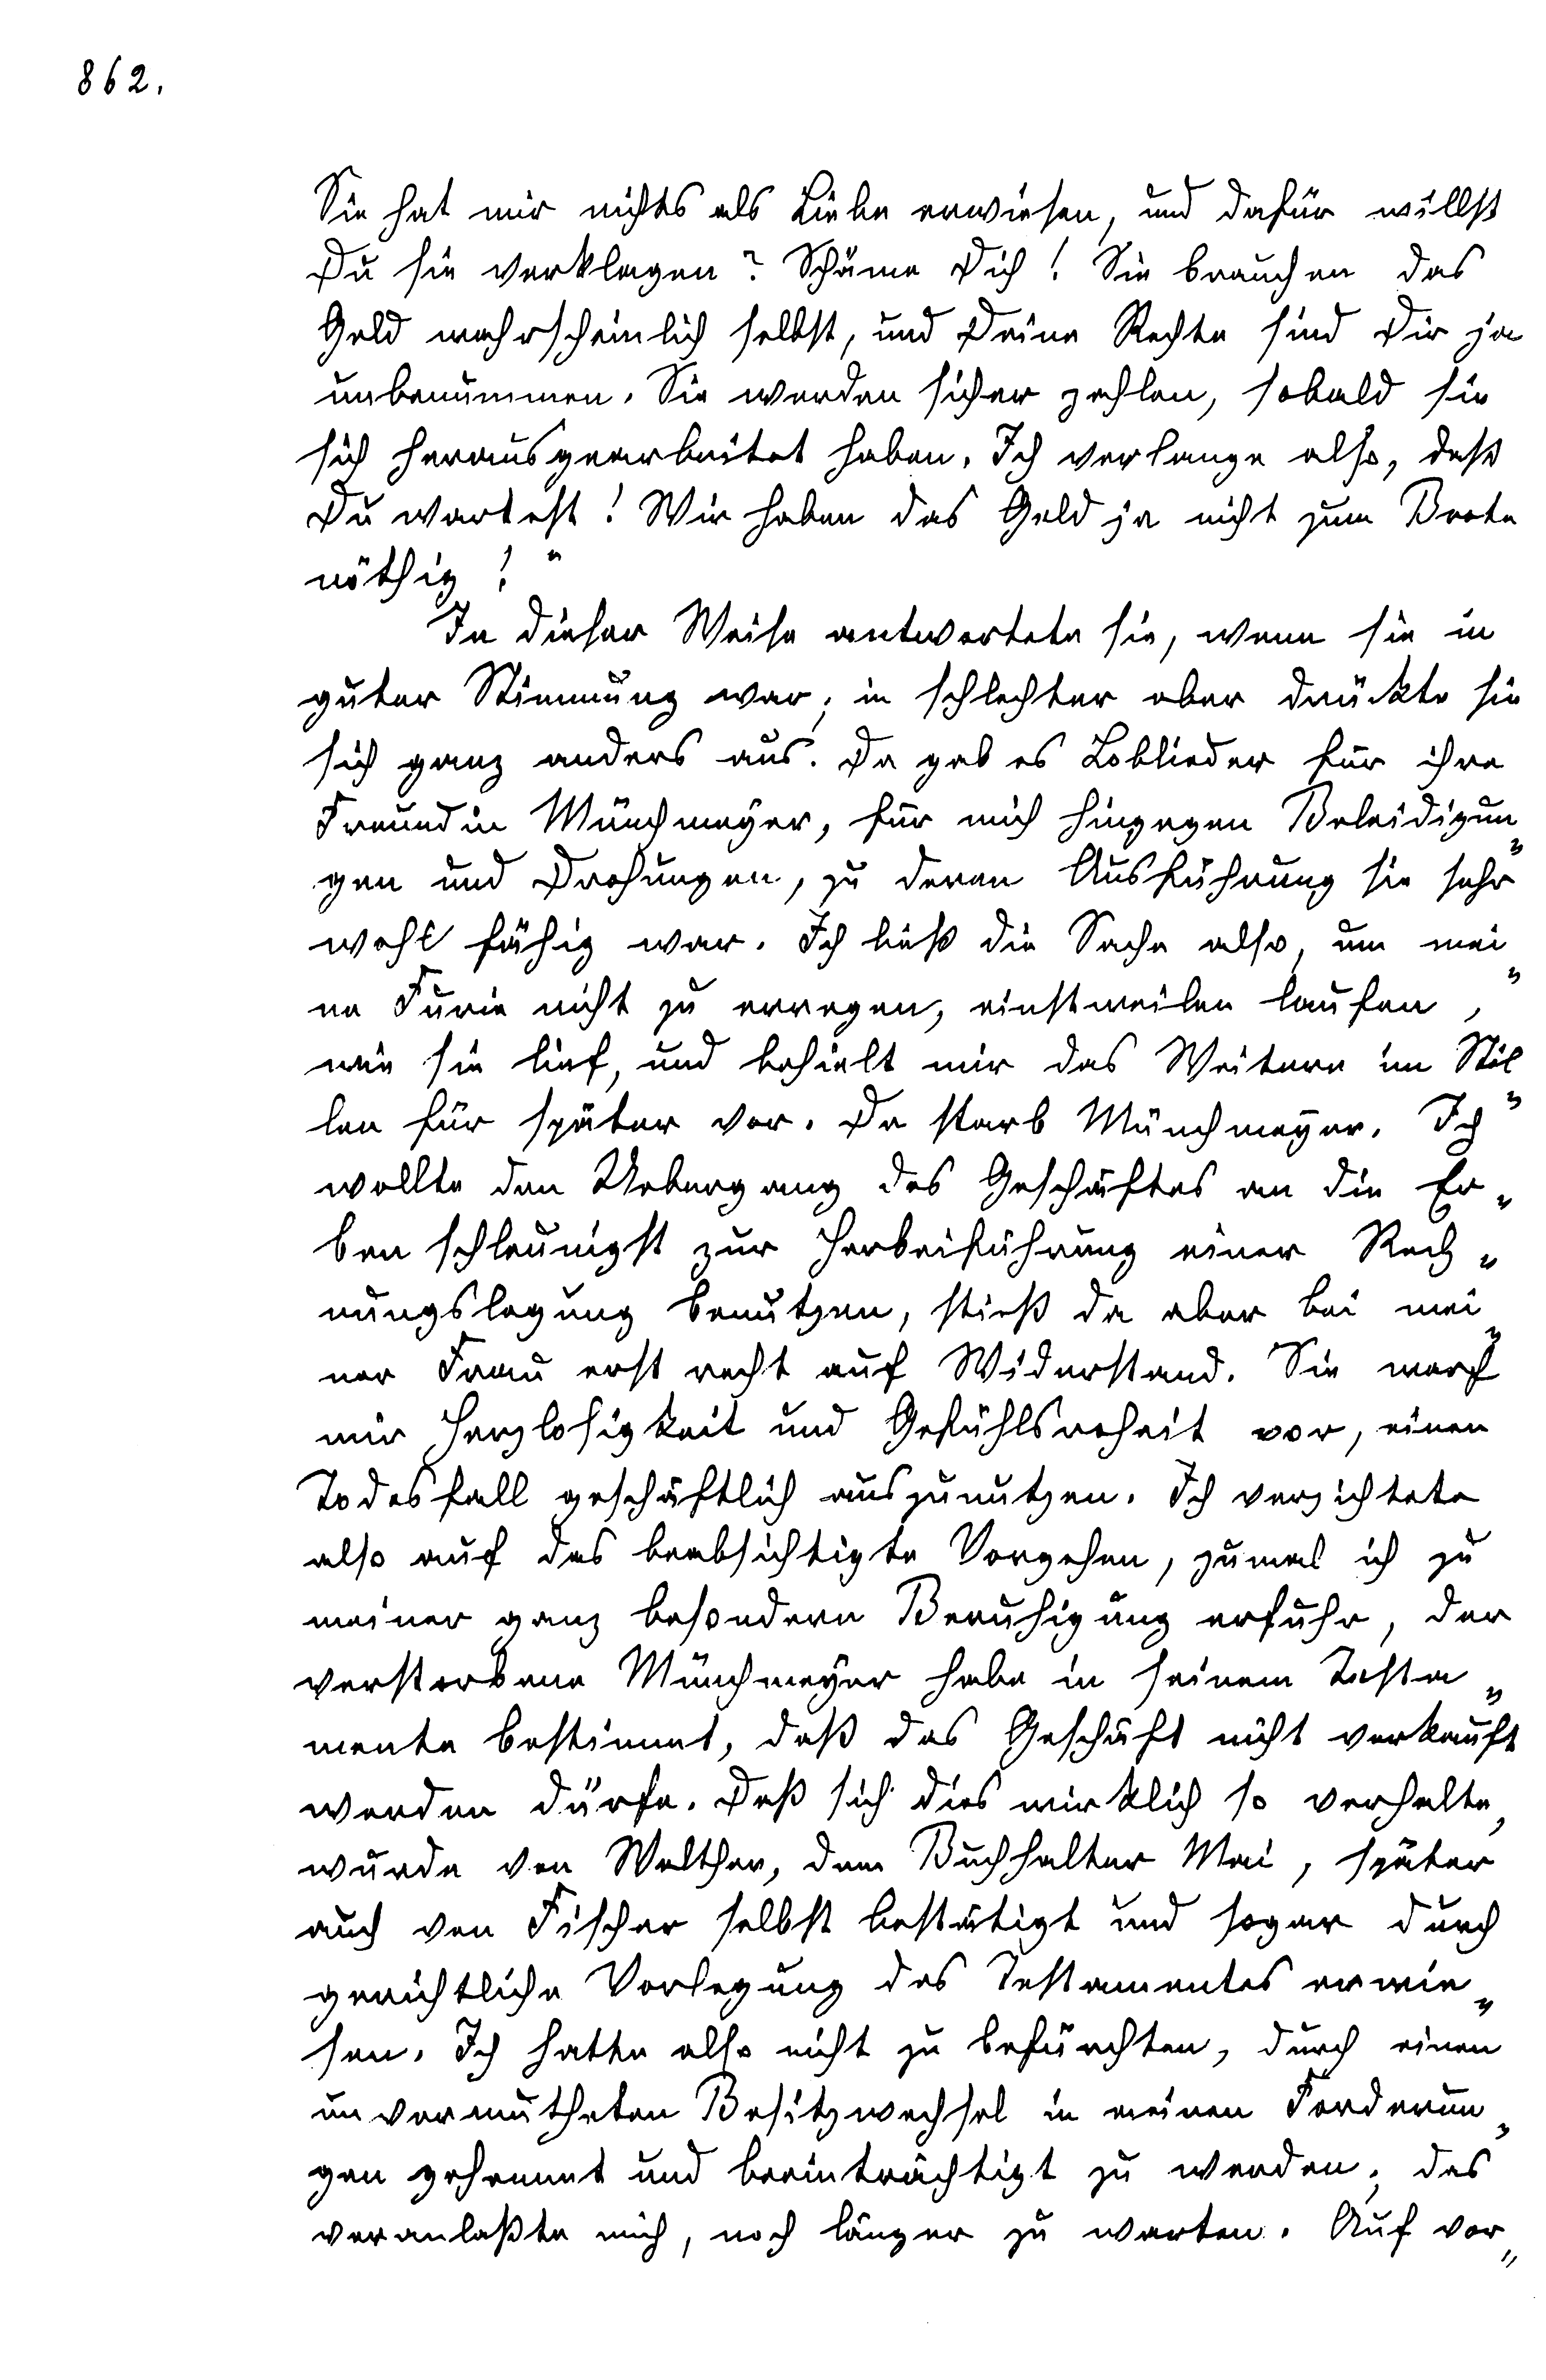 862.
Sie hat mir nichts als Liebe erwiesen, und dafür willst
Du sie verklagen? Schäme Dich! Sie brauchen das
Geld wahrscheinlich selbst, und Deine Rechte sind Dir ja
unbenummen. Sie werden sicher zahlen, sobald sie
sich herausgearbeitet haben. Ich verlange also, daß
Du wartest! Wir haben das Geld ja nicht zum Brote
nöthig!"
In dieser Weise antwortete sie, wenn sie in
guter Stimmung war; in schlechter aber drückte sie
sich ganz anders aus. Da gab es Loblieder für ihre
Freundin Münchmeyer, für mich hingegen Beleidigun„
gen und Drohungen, zu deren Ausführung sie sehr
wohl fähig war. Ich ließ die Sache also, um mei„
ne Furie nicht zu erregen, einstweilen laufen,
wie sie lief, und behielt mir das Weitere im Stil„
len für später vor. Da starb Münchmeyer. Ich
wollte den Uebergang des Geschäftes an die Er„
ben schleunigst zur Herbeiführung einer Rech„
nungslegung benutzen, stieß da aber bei mei„
ner Frau erst recht auf Widerstand. Sie warf
mir Herzlosigkeit und Gefühlsroheit vor, einen
Todesfall geschäftlich auszunutzen. Ich verzichtete
also auf das beabsichtigte Vorgehen, zumal ich zu
meiner ganz besondern Beruhigung erfuhr, der
verstorbene Münchmeyer habe in seinem Testa„
mente bestimmt, daß das Geschäft nicht verkauft
werden dürfe. Daß sich dies wirklich so verhalte,
wurde von Walther, dem Buchhalter Mai, später
auch von Fischer selbst bestätigt und sogar durch
gerichtliche Vorlegung des Testamentes erwie„
sen. Ich hatte also nicht zu befürchten, durch einen
unvermutheten Besitzwechsel in meinen Forderun„
gen gehemmt und beeinträchtigt zu werden; das
veranlaßte mich, noch länger zu warten. Auf vor„